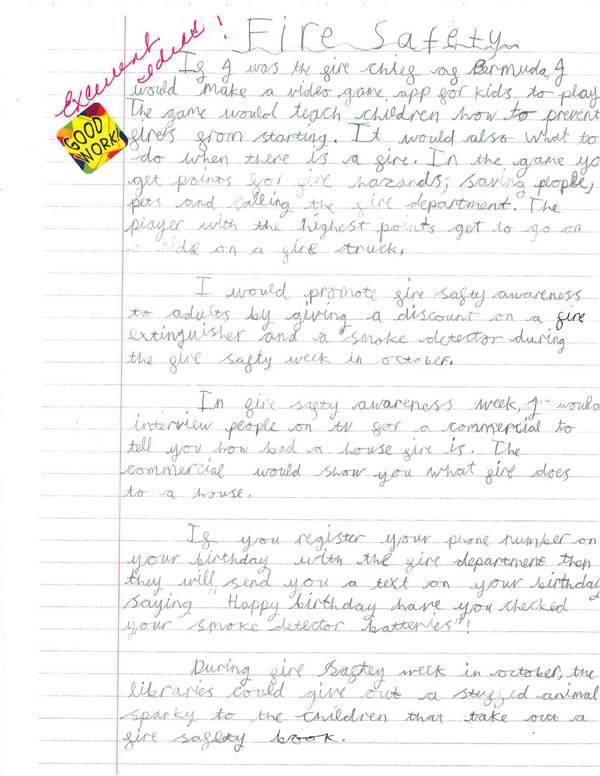 Excellent ideas!
GOOD WORK!
Fire Safety
If I was the fire chief of Bermuda, I
would make a video game app for kids to play
The game would teach children how to prevent
fire's from starting. It would also what to
do when there is a fire. In the game yo
get points for fire hazands, saving people,
pets and calling the fire department. The
player with the highest points get to go on
a ride on a fire truck.
I would promote fire safty awareness
to adults by giving a discount on a fire
extinguisher and a smoke detector during
the fire safty week in october.
In fire safty awareness week, I would
interview people on tv for a commercial to
tell you how bad a house fire is. The
commercial would show you what fire does
to a house.
If you register your phone number on
your birthday with the fire department then
they will send you a text on your birthday
saying "Happy birthday have you checked
your smoke detector batteries"!
During fire Saftey week in october, the
libraries could give out a stuffed animal
sparky to the children that take out a
fire safety book.